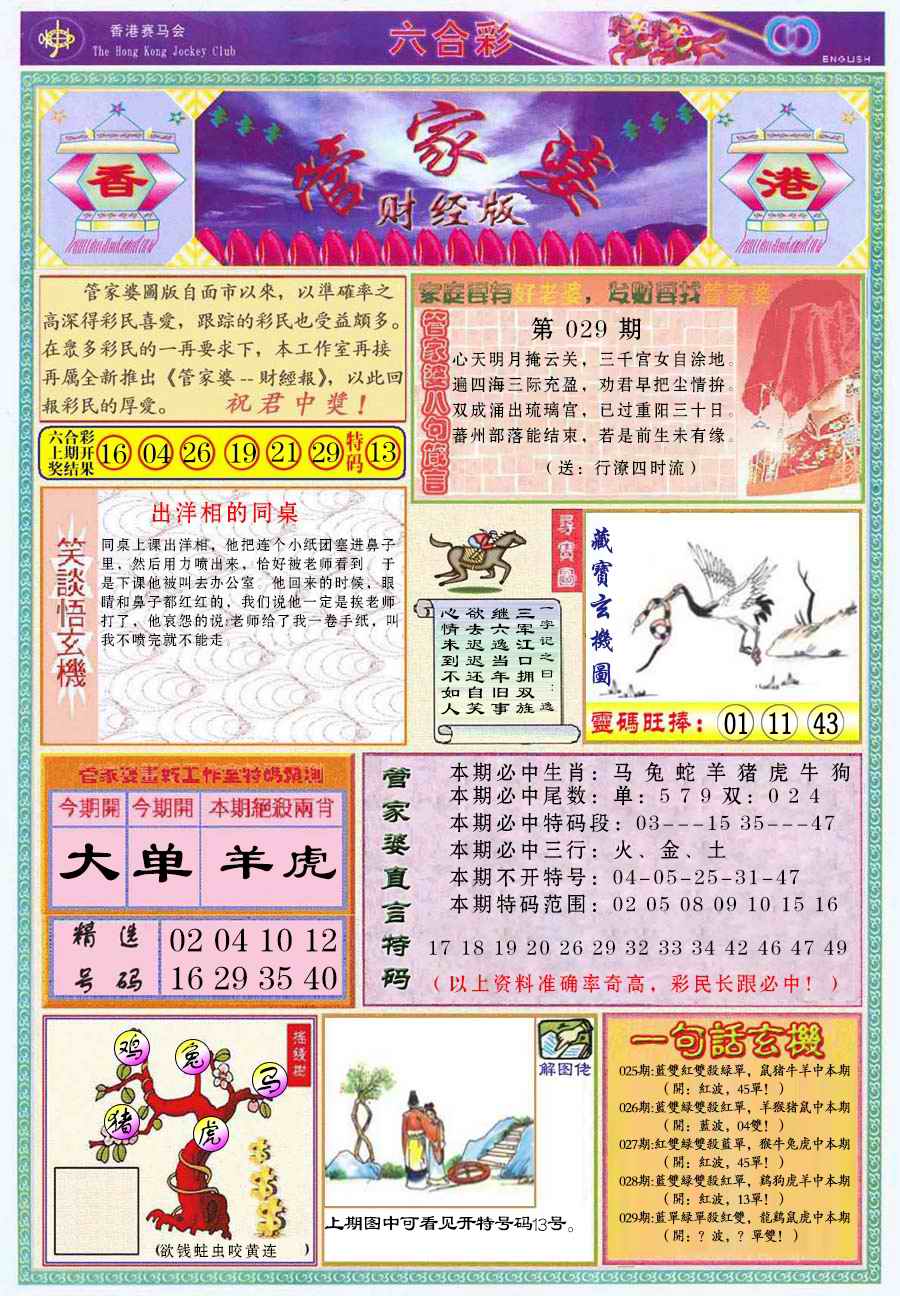 香港赛马会
The Hong Kong Jockey Club
六合彩
ENGLISH
香
管家婆
财经版
港
管家婆圖版自面市以來，以準確率之
高深得彩民喜愛，跟踪的彩民也受益頗多。
在眾多彩民的一再要求下，本工作室再接
再厲全新推出《管家婆--財經報》，以此回
報彩民的厚愛。 祝君中獎！
六合彩
上期开
奖结果
16 04 26 19 21 29 特码 13
家庭要有好老婆，发财要找管家婆
管家婆八句箴言
第 029 期
心天明月掩云关，三千官女自涂地。
遍四海三际充盈，劝君早把尘情拚。
双成涌出琉璃宫，已过重阳三十日。
蕃州部落能结束，若是前生未有缘。
（送：行潦四时流）
笑談悟玄機
出洋相的同桌
同桌上课出洋相，他把连个小纸团塞进鼻子
里，然后用力喷出来，恰好被老师看到，于
是下课他被叫去办公室，他回来的时候，眼
睛和鼻子都红红的，我们说他一定是挨老师
打了，他哀怨的说:老师给了我一卷手纸，叫
我不喷完就不能走
尋寶圖
一字记之曰：逸
三军江口拥双旌
继六逸当年旧事
欲去迟迟还自笑
心情未到不如人
藏寶玄機圖
靈碼旺捧： 01 11 43
今期開 今期開 本期絕殺兩肖
大 单 羊 虎
精选
号码
02 04 10 12
16 29 35 40
管家婆直言特码
本期必中生肖：马 兔 蛇 羊 猪 虎 牛 狗
本期必中尾数：单：5 7 9 双：0 2 4
本期必中特码段：03---15 35---47
本期必中三行：火、金、土
本期不开特号：04-05-25-31-47
本期特码范围：02 05 08 09 10 15 16
17 18 19 20 26 29 32 33 34 42 46 47 49
（以上资料准确率奇高，彩民长跟必中！）
搖錢樹
鸡
兔
马
猪
虎
（欲钱蛀虫咬黄连 ）
解图佬
上期图中可看见开特号码13号。
一句話玄機
025期:藍雙紅雙殺綠單，鼠猪牛羊中本期
（開：紅波，45單！）
026期:藍雙綠雙殺紅單，羊猴猪鼠中本期
（開：藍波，04雙！）
027期:紅雙綠雙殺藍單，猴牛兔虎中本期
（開：紅波，45單！）
028期:藍雙綠雙殺紅單，鷄狗虎羊中本期
（開：紅波，13單！）
029期:藍單綠單殺紅雙，龍鷄鼠虎中本期
（開：？波，？單雙！）